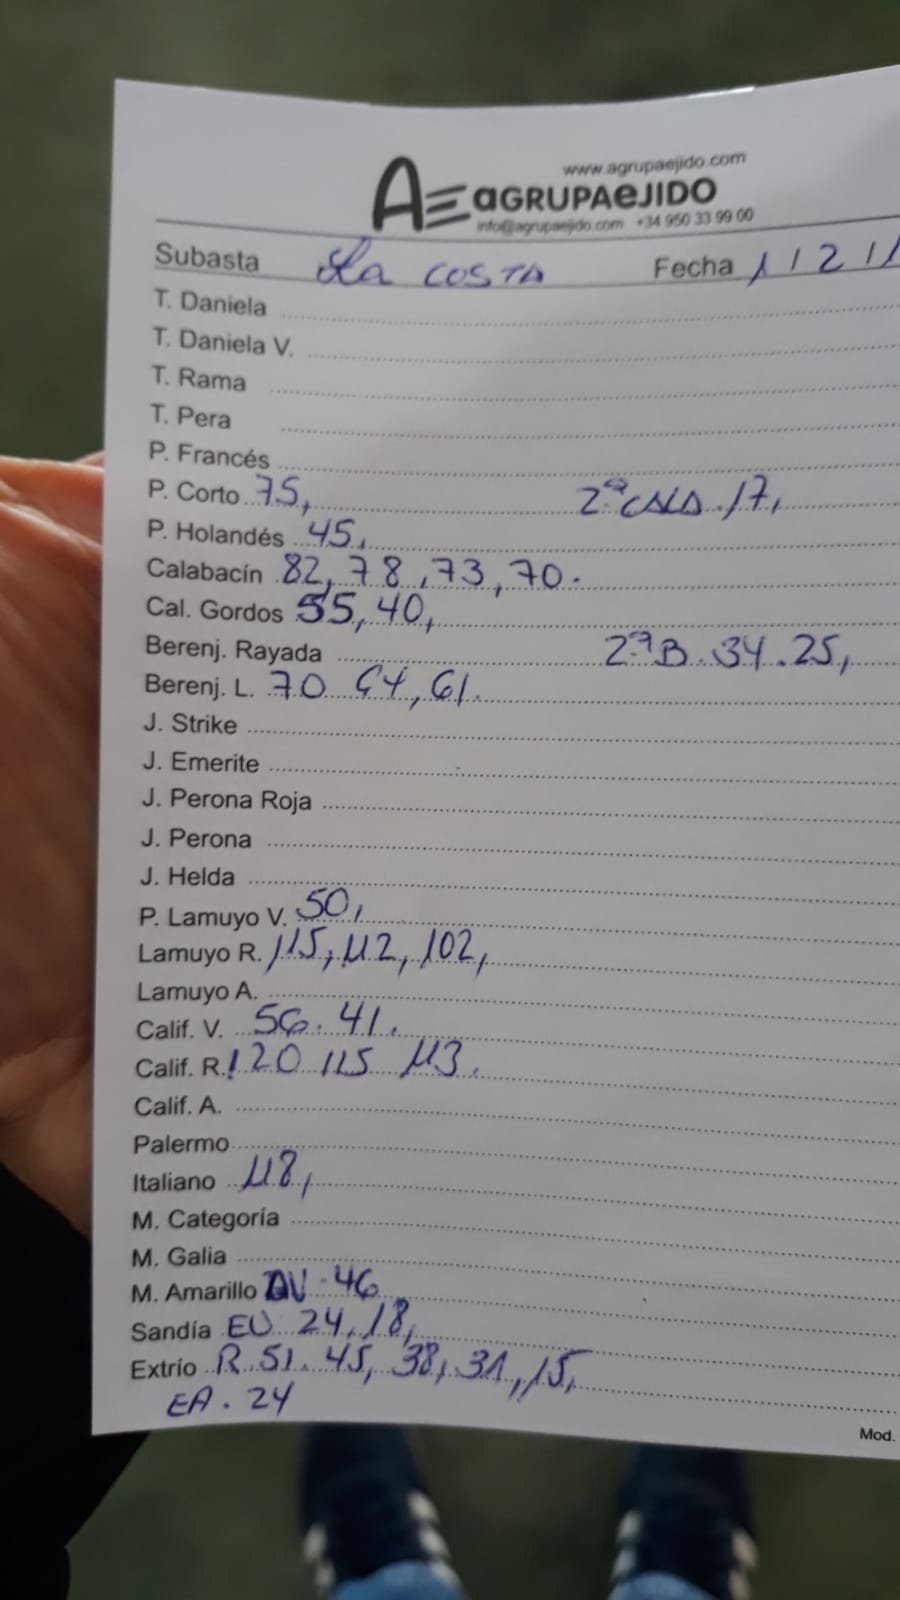 www.agrupaejido.com
AE aGRUPAeJIDO
info@agrupaejido.com +34 950 33 99 00
Subasta La COSTA Fecha 1 / 2 /
T. Daniela
T. Daniela V.
T. Rama
T. Pera
P. Francés
P. Corto 75, 2ª CALD. 17,
P. Holandés 45,
Calabacín 82, 78, 73, 70.
Cal. Gordos 55, 40,
Berenj. Rayada 2ªB. 34. 25,
Berenj. L. 70 64, 61.
J. Strike
J. Emerite
J. Perona Roja
J. Perona
J. Helda
P. Lamuyo V. 50,
Lamuyo R. 115, 112, 102,
Lamuyo A.
Calif. V. 56. 41.
Calif. R. 120 115 113.
Calif. A.
Palermo
Italiano 118,
M. Categoría
M. Galia
M. Amarillo 46
Sandía EV 24, 18,
Extrío R. 51. 45, 38, 31, 15,
EA. 24
Mod.